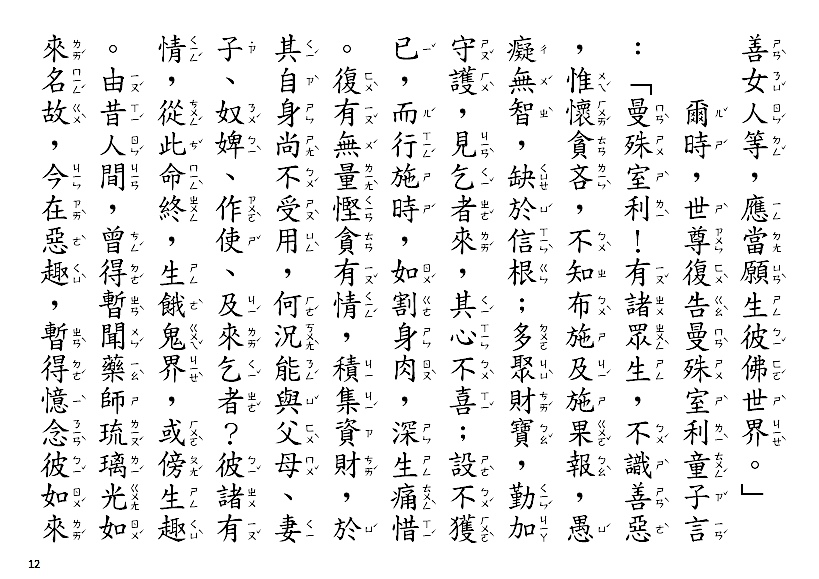 善女人等，應當願生彼佛世界。」
爾時，世尊復告曼殊室利童子言
：「曼殊室利！有諸眾生，不識善惡
，惟懷貪吝，不知布施及施果報，愚
癡無智，缺於信根；多聚財寶，勤加
守護，見乞者來，其心不喜；設不獲
已，而行施時，如割身肉，深生痛惜
。復有無量慳貪有情，積集資財，於
其自身尚不受用，何況能與父母、妻
子、奴婢、作使、及來乞者？彼諸有
情，從此命終，生餓鬼界，或傍生趣
。由昔人間，曾得暫聞藥師琉璃光如
來名故，今在惡趣，暫得憶念彼如來
12